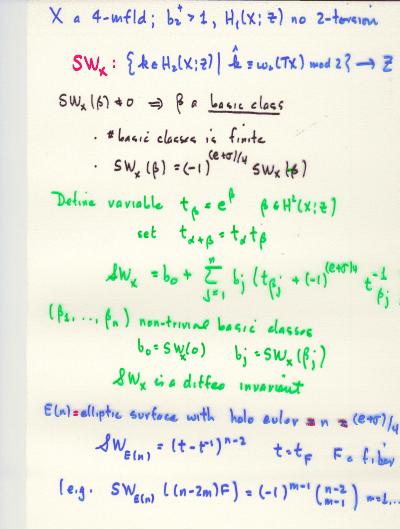 X a 4-mfld; b₂⁺ > 1, H₁(X; Z) no 2-torsion
SWₓ: {k ∈ H₂(X; Z) | k̂ ≡ w₂(TX) mod 2} → Z
SWₓ(β) ≠ 0 ⇒ β a basic class
· # basic classes is finite
· SWₓ(β) = (-1)^{(e+σ)/4} SWₓ(β)
Define variable t_β = e^β β ∈ H²(X; Z)
set t_{α+β} = t_α t_β
SWₓ = b₀ + Σ_{j=1}^{n} b_j (t_{β_j} + (-1)^{(e+σ)/4} t_{β_j}^{-1}
(β₁, ..., βₙ) non-trivial basic classes
b₀ = SWₓ(0) b_j = SWₓ(β_j)
SWₓ is a diffeo invariant
E(n) = elliptic surface with holo euler = n = (e+σ)/4
SW_{E(n)} = (t - t⁻¹)^{n-2} t = t_F F = fiber
(e.g. SW_{E(n)}((n-2m)F) = (-1)^{m-1} (n-2 m-1) m=1,...